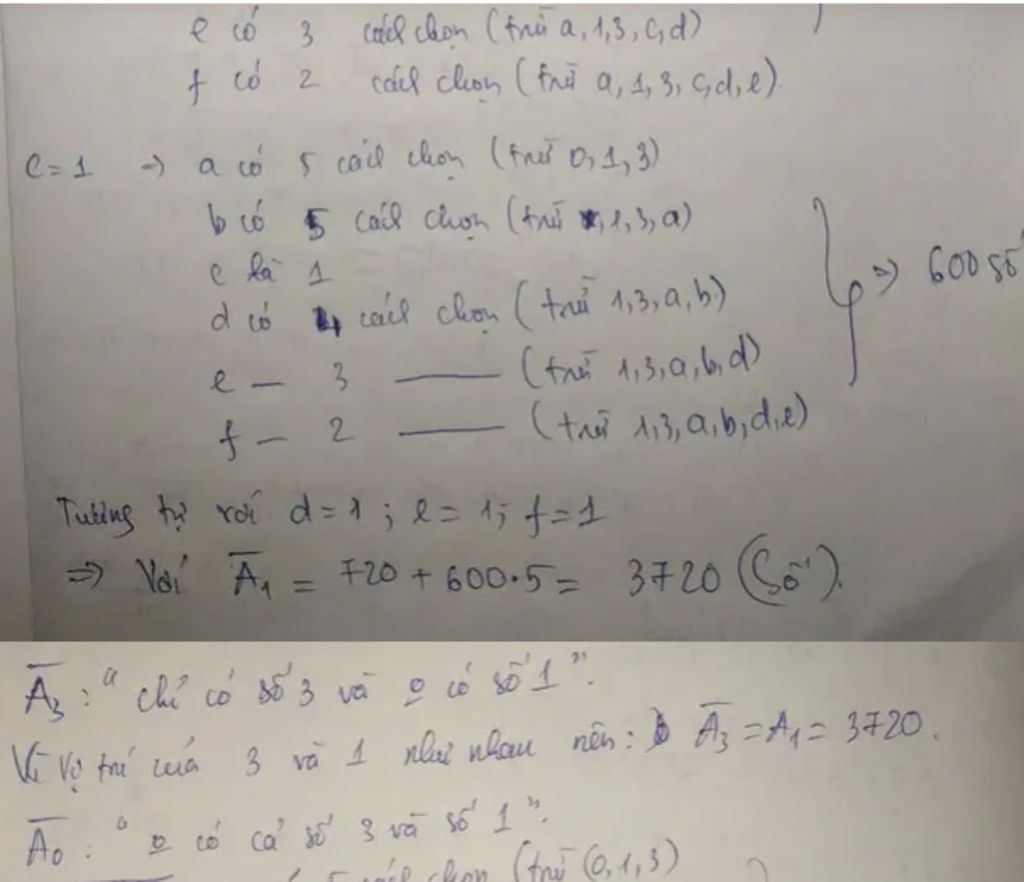 e có 3 cách chọn (trừ a, 1, 3, c, d)
f có 2 cách chọn (trừ a, 1, 3, c, d, e)
c = 1 → a có 5 cách chọn (trừ 0, 1, 3)
b có 5 cách chọn (trừ 1, 3, a)
c là 1
d có 4 cách chọn (trừ 1, 3, a, b)
e — 3 —— (trừ 1, 3, a, b, d)
f — 2 —— (trừ 1, 3, a, b, d, e)
⇒ 600 số
Tương tự với d = 1 ; e = 1 ; f = 1
⇒ Với A̅₁ = 720 + 600 . 5 = 3720 (Số).
A̅₃ : "chỉ có số 3 và o̲ có số 1".
Vì vị trí của 3 và 1 như nhau nên : A̅₃ = A₁ = 3720.
A̅₀ : "o̲ có cả số 3 và số 1".
5 cách chọn (trừ (0, 1, 3)